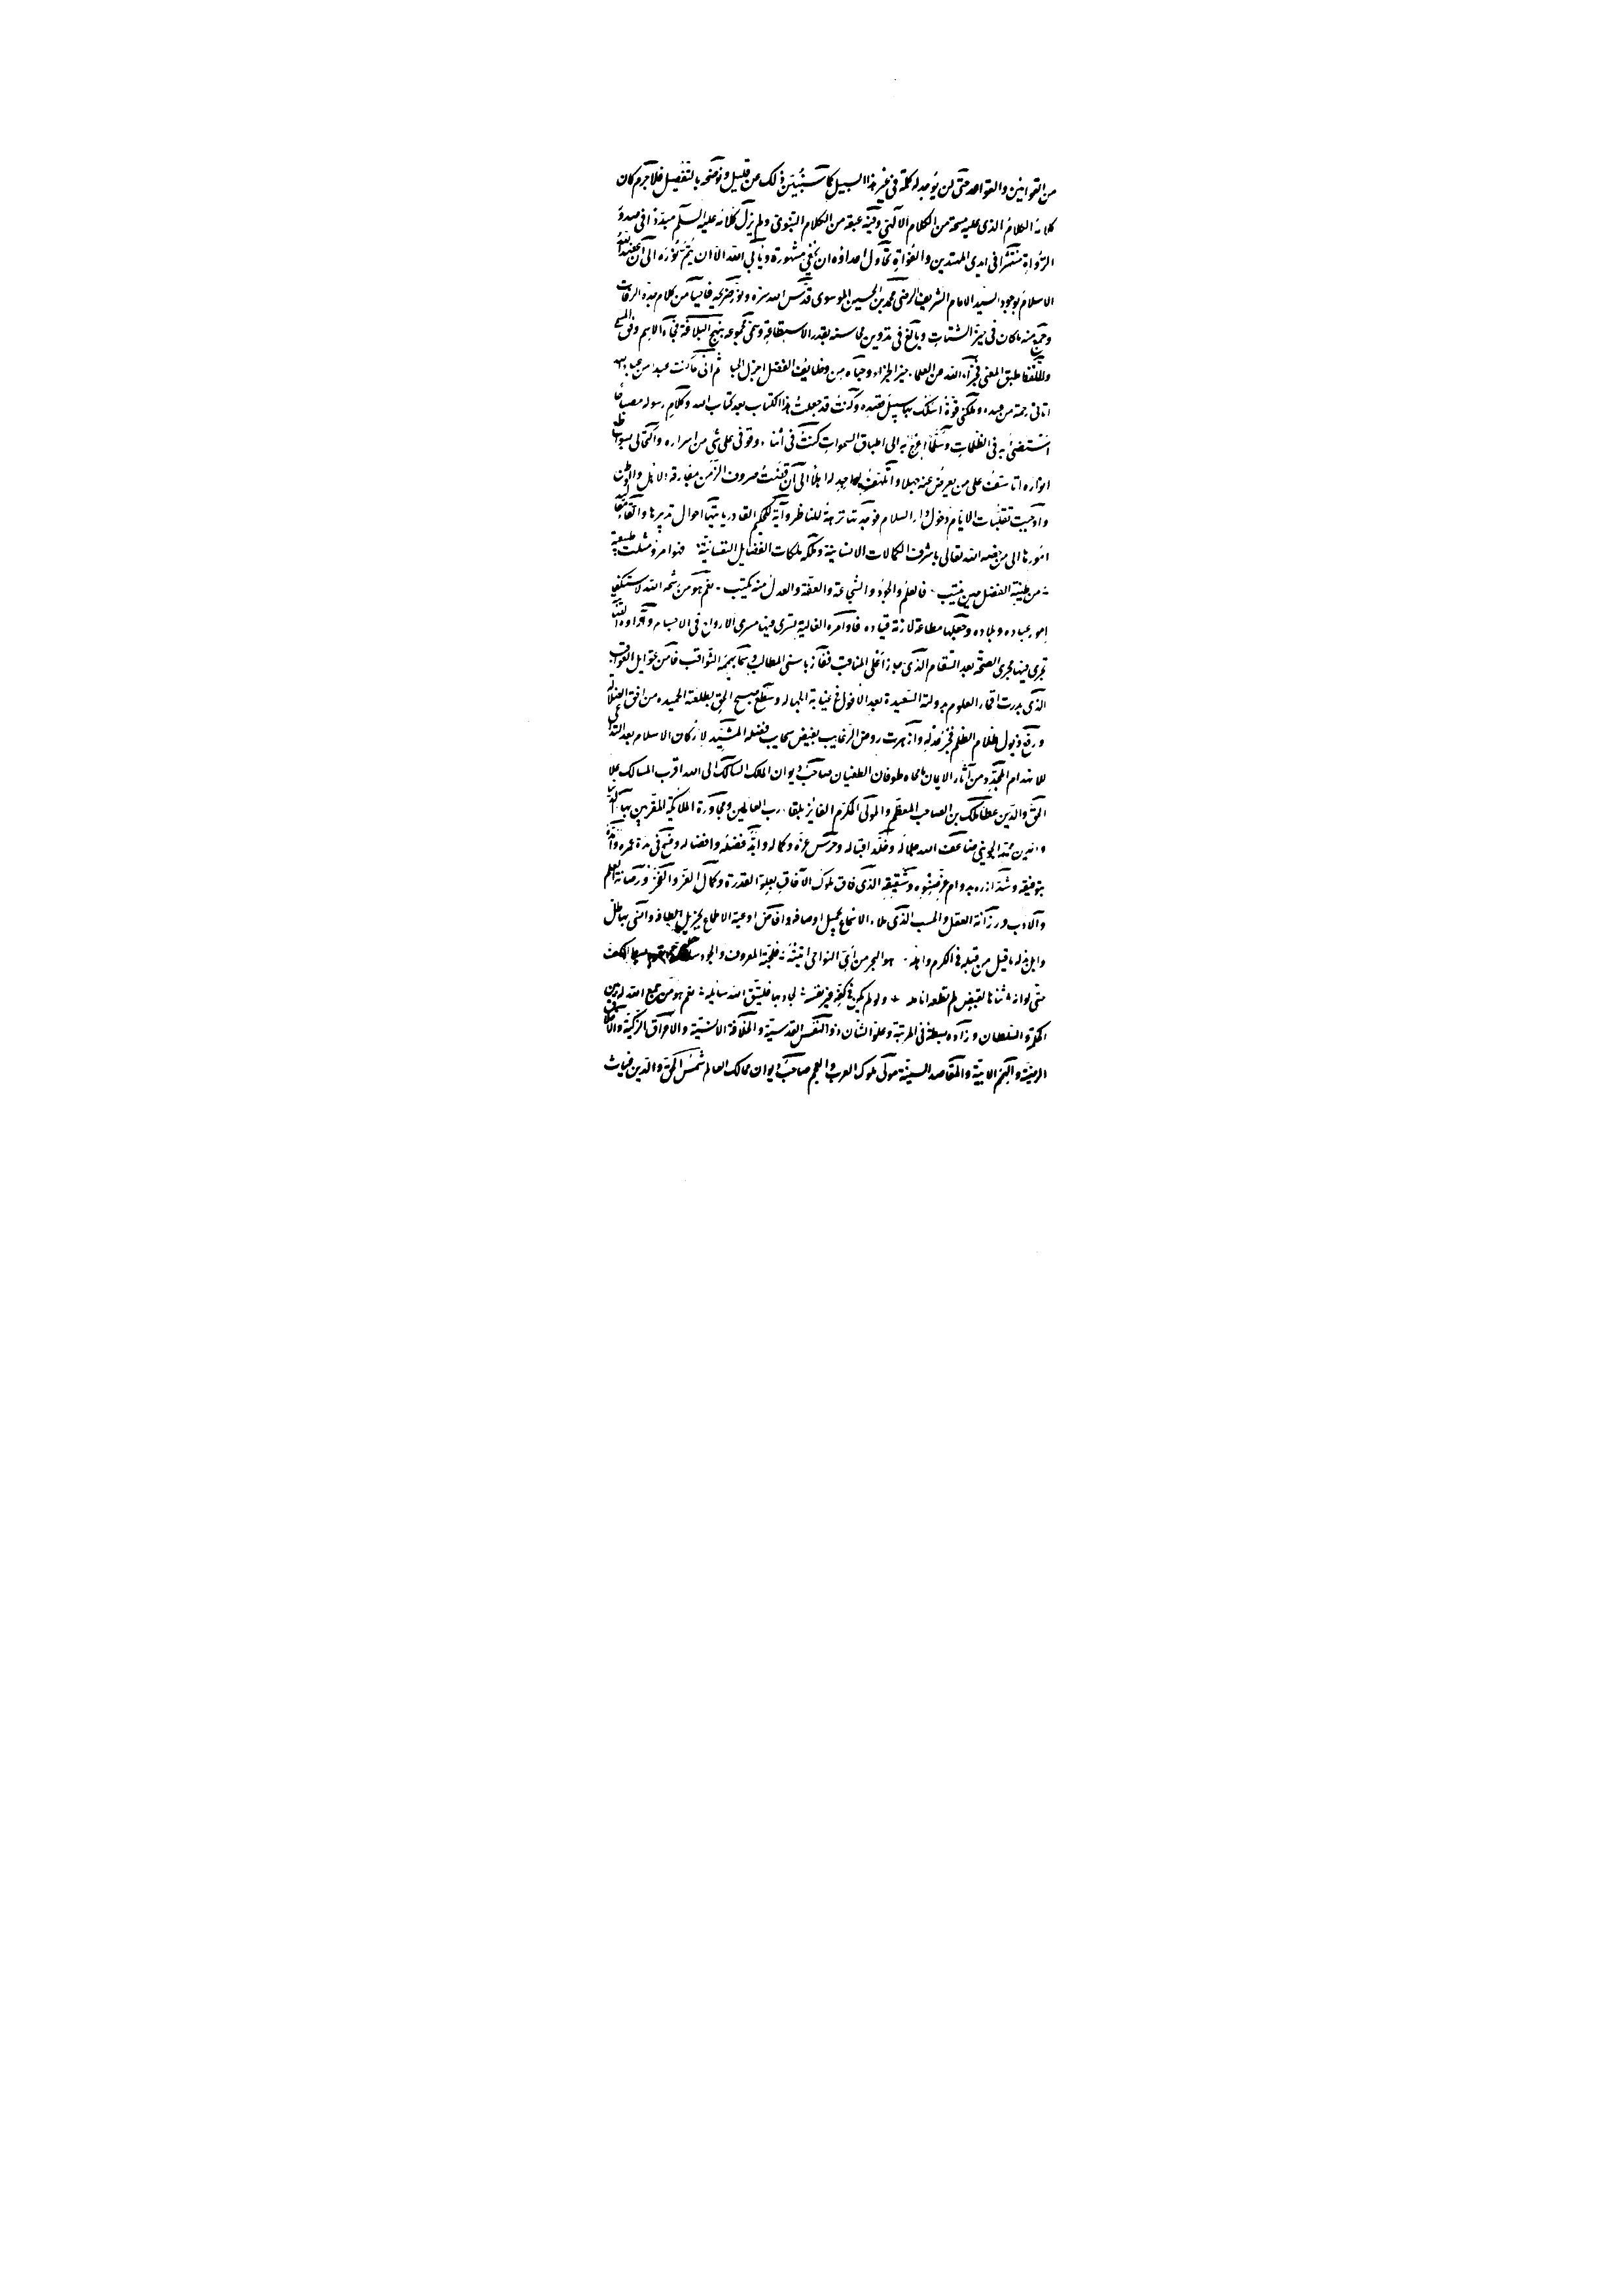 من القوانين والقواعد حتى لن يوجد له كلمة فى غير هذا السبيل كما سنبين ذلك عن قليل ونوضحه بالتفصيل فلا جرم كان
كلامه الكلام الذى عليه مسحة من الكلام الالهى وفيه عبقة من الكلام النبوى ولم يزل كلامه عليه السلم مبددا فى صدور
الرواة منتشرا فى ايدى المهتدين والغواة تحاول اعداؤه ان يخفى مشهوره ويابى الله الا ان يتم نوره الى ان عضد الله
الاسلام بوجود السيد الامام الشريف الرضى محمد بن الحسين الموسوى قدس الله سره ونور ضريحه فاحيا من كلامه الرفات
وجمع منه ما كان فى حيز الشتات وبالغ فى تدوين محاسنه بقدر الاستطاعة وسمى مجموعه بنهج البلاغة فجاء الاسم وفق المسمى
واللفظ طبق المعنى فجزاه الله عن العلماء خير الجزاء وحباه من وظايف الفضل اجزل الحبا ثم انى كنت عبدا من عبيد الله
اتانى رحمة من عنده وملكنى قوة اسلك بها سبيل قصده وكنت قد جعلت هذا الكتاب بعد كتاب الله وكلام رسوله مصباحا
استضئ به فى الظلمات وسلما اعرج به الى اطباق السموات كنت فى أثناء وقوفى على شى من اسراره واكتحالى بسواطع
انواره اتاسف على من يعرض عنه جهلا واتلهف لما اجد له اهلا الى ان قضت صروف الزمن مفارقة الاهل والوطن
واوجبت تقلبات الايام دخول دار السلام فوجدتها نزهة للناظر وآية للحكيم القادر بانتهاء احوال تدبيرها والقاء مقاليد
امورها الى من خصه الله تعالى باشرف الكمالات الانسانية وملكه ملكات الفضايل النفسانية
من طينة الفضل حين ينتسب فالعلم والجود والشجاعة والعفة والعدل منه تكتسب نعم هو من شحه الله لاستكفاء
امور عباده وبلاده وجعلها مطاعة لازمة قياده فاوامره العالية تسرى فيها مسرى الارواح فى الاجسام
تجرى فيها مجرى الصحة بعد السقام الذى حاز اعلى المناقب ففاز باسنى المطالب وسما بهممه الثواقب فامن غوايل العواقب
الذى بدرت اقمار العلوم بدولته السعيدة بعد الافول فى غيابة الجهاله وسطع صبح الحق بطلعته الحميده من افق الضلاله
ورفع ذيول ظلام الظلم فجر عدله وازهرت روض الرغايب بفيض سحايب فضله المشيد لاركان الاسلام بعد التداعى
للانهدام المجدد من آثار الايمان ما محاه طوفان الطغيان صاحب ديوان الملك السالك الى الله اقرب المسالك علاء
الحق والدين عطا ملك بن الصاحب المعظم والمولى المكرم الفائز بلقاء رب العالمين ومجاورة الملائكة المقربين بهاء الدنيا
والدين محمد الجوينى ضاعف الله جلاله وخلد اقباله وحرس عزه وكماله وايد فضله وافضاله وفسح فى مدة عمره وامده
بتوفيقه وشد ازره بدوام عز صنوه وشقيقه الذى فاق ملوك الآفاق بعلو القدرة وكمال العز والفخر ورصانة العلم
والادب ورزانة العقل والحسب الذى ملاء الاسماع بجميل اوصافه وافاض اوعية الاطماع بجزيل الطافه وانسى بهاطل
وابل بذله ما قيل من قبله فى الكرم واهله هو البحر من اى النواحى اتيته فلجته المعروف والجود ساحله تعود بسط الكف
حتى لو انه ثناها لقبض لم تطعه انامله ولو لم يكن فى كفه غير نفسه لجاد بها فليتق الله سايله نعم هو من جمع الله له بين
الحكمة والسلطان وزاده بسطة فى المرتبة وعلو الشان ذو النفس القدسية والخلافة الانسية والاعراق الزكية والاخلاق
الرضية والهمم الابية والمقاصد السنية مولى ملوك العرب والعجم صاحب ديوان ممالك العالم شمس الحق والدين غياث